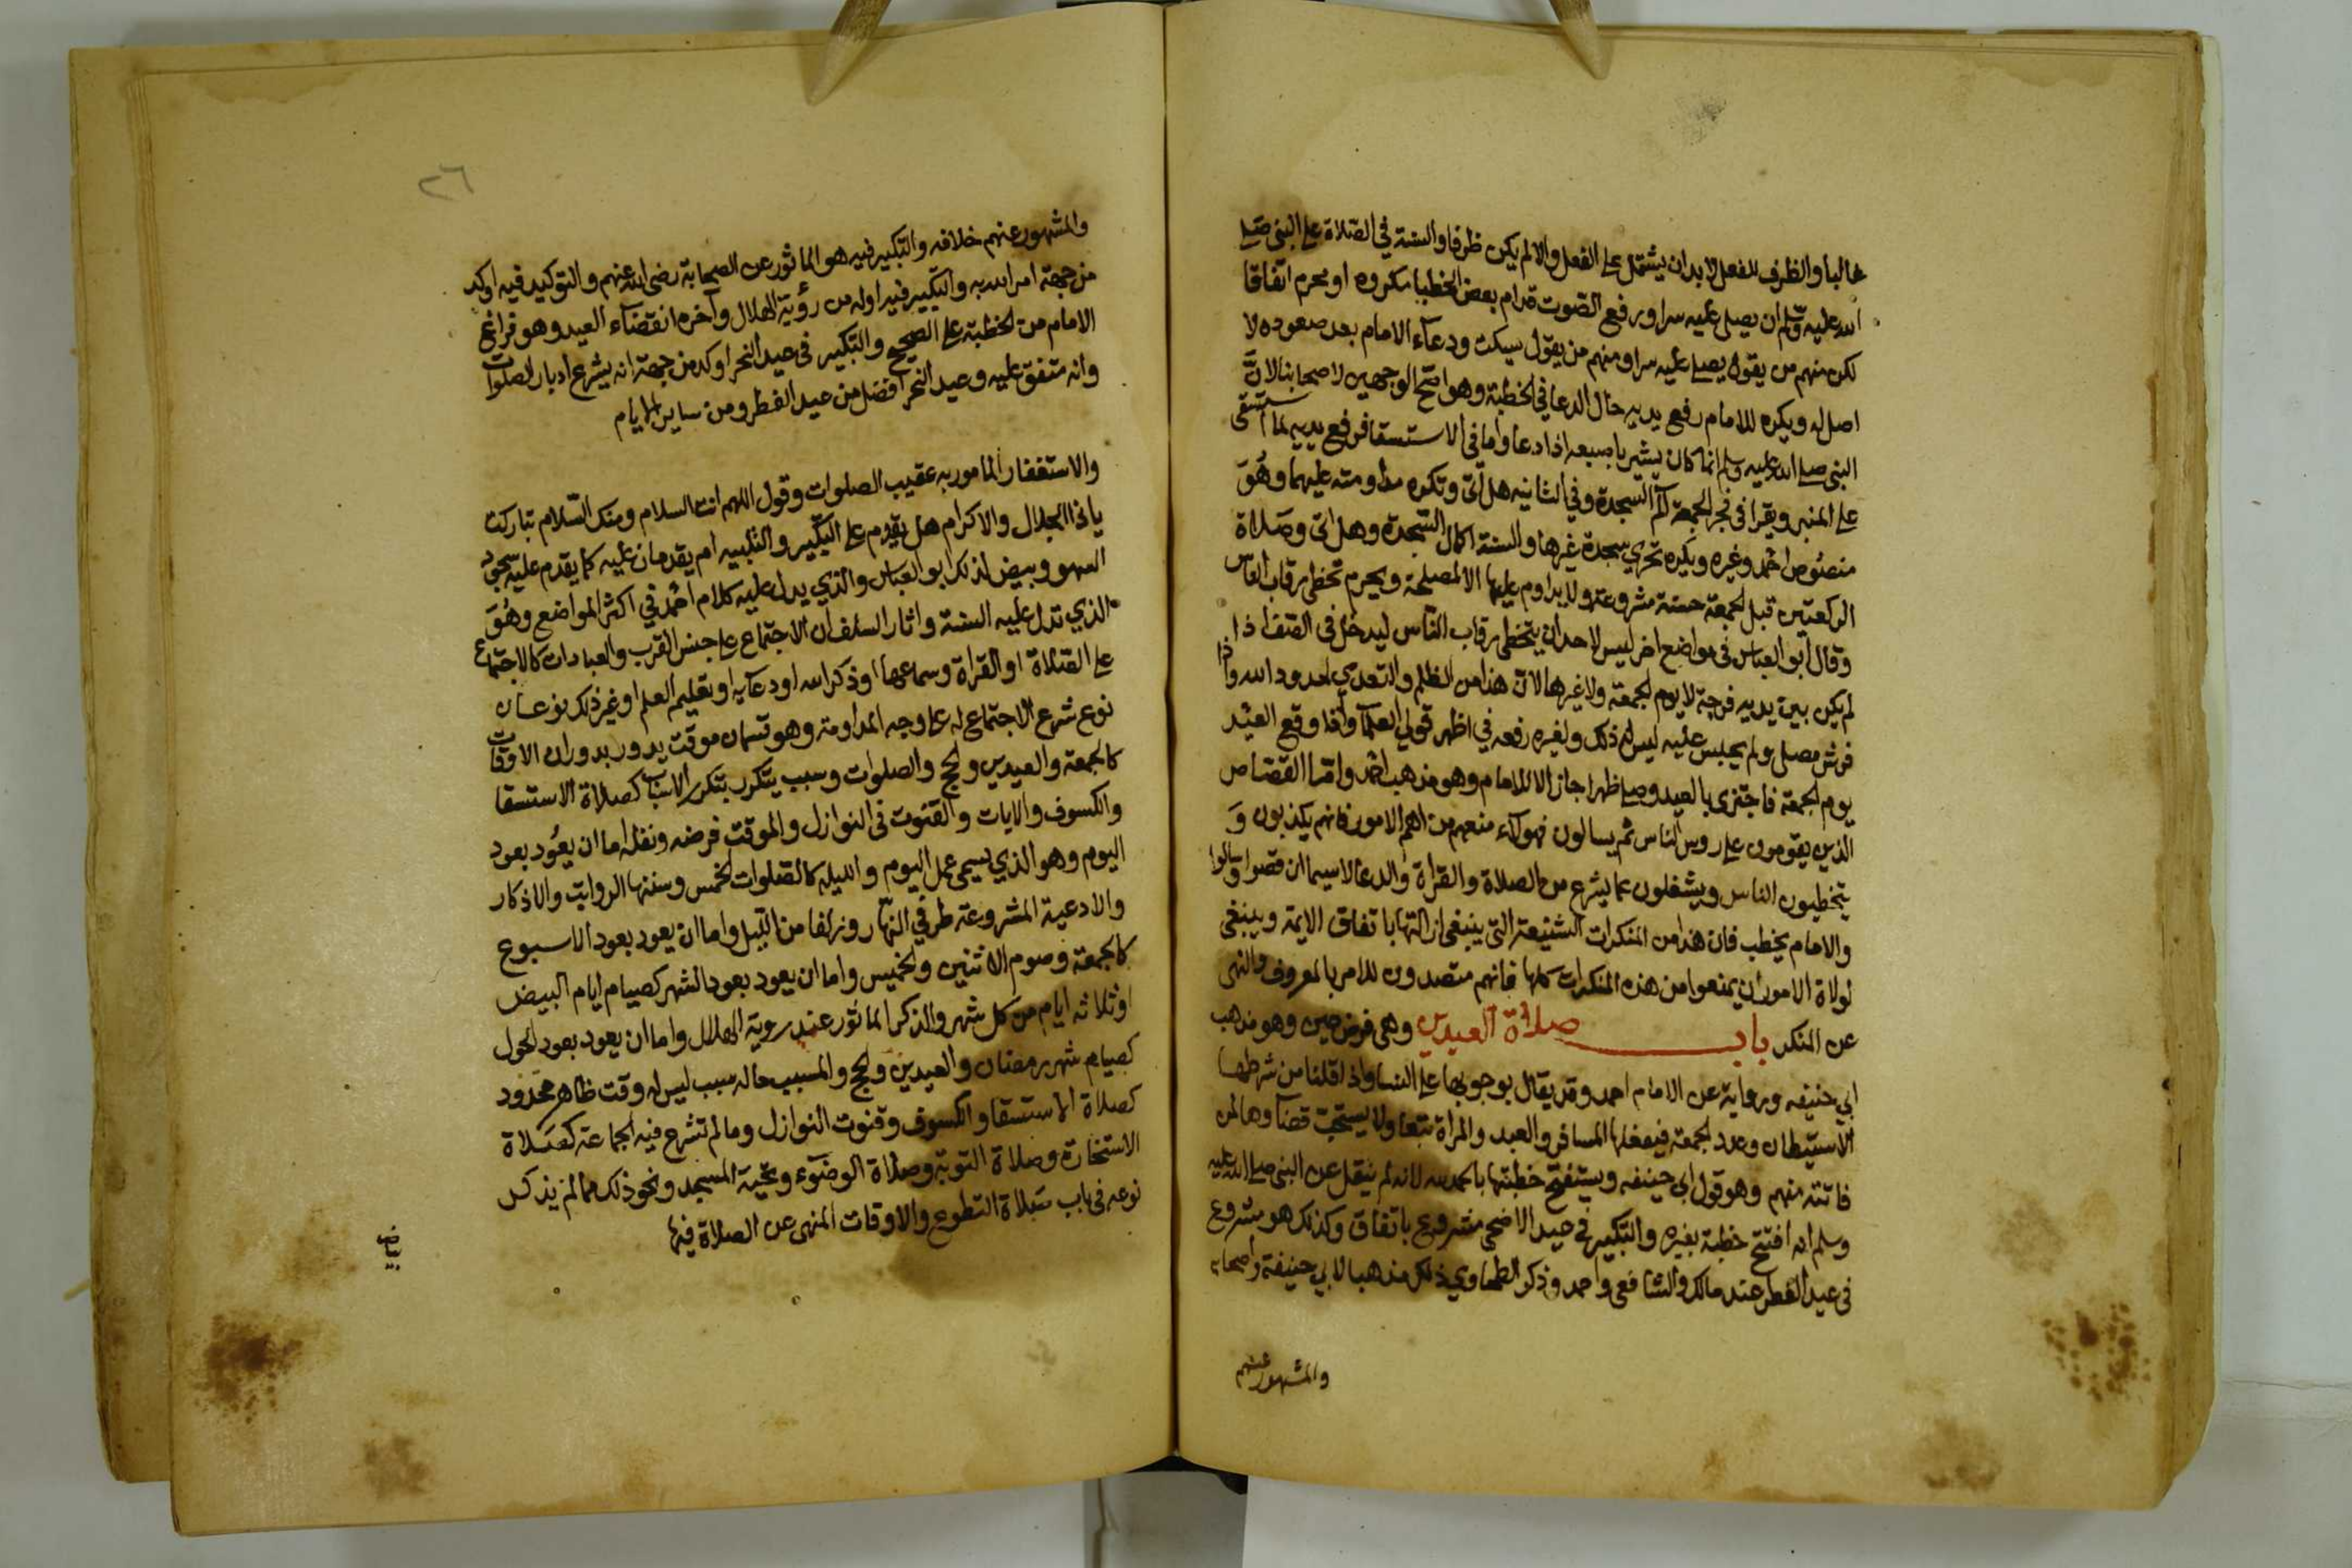 غالبا والظرف للفعل لابد ان يشتمل على الفعل والا لم يكن ظرفا والسنة في الصلاة على النبي صلى
الله عليه وسلم ان يصلى عليه سرا ورفع الصوت قدام بعض الخطبا مكروه او محرم اتفاقا
لكن منهم من يقول يصلى عليه سرا ومنهم من يقول يسكت ودعاء الامام بعد صعوده لا
اصل له ويكره للامام رفع يديه حال الدعا في الخطبة وهو اصح الوجهين لاصحابنا لانَّ
النبي صلى الله عليه وسلم انما كان يشير باصبعه اذا دعا واما في الاستسقا فرفع يديه لما استسقى
على المنبر ويقرا في فجر الجمعة الم السجدة وفي الثانيه هل أتى وتكره مداومته عليهما وهُوَ
منصُوص احمد وغيره ويكره تحري سجدة غيرها والسنة اكمال السجدة وهل اتى وصَلاة
الركعتين قبل الجمعة حسنة مشروعة ولا يداوم عليها الا لمصلحة ويحرم تخطى رقاب الناس
وقال ابو العباس في مواضع اخر ليس لاحد ان يتخطى رقاب الناس ليدخل في الصف اذا
لم يكن بين يديه فرجة لا يوم الجمعة ولا غيرها لان هذا من الظلم والتعدي لحدود الله واذا
فرش مصلى ولم يجلس عليه ليس له ذلك ولغيره رفعه في اظهر قولي العلما واذا وقع العيْد
يوم الجمعة فاجتزى بالعيد وصلى ظهرا جاز الا للامام وهو مذهب احمد واما القصاص
الذين يقومون على روس الناس ثم يسالون فهولاء منعهم من اهم الامور فانهم يكذبون وَ
يتخطيون الناس ويشغلون عما يشرع من الصلاة والقراة والدعا لاسيما ان قصوا وسالوا
والامام يخطب فان هذا من المنكرات الشنيعة التي ينبغى ازالتها باتفاق الايمة وينبغى
لولاة الامور أن يمنعوا من هذه المنكرات كلها فانهم متصدون للامر بالمعروف والنهى
عن المنكر باب صلاة العيدين وهى فرض عين وهو مذهب
ابي حنيفه ورواية عن الامام احمد وقد يقال بوجوبها على النسا واذا قلنا من شرطها
الاستيطان وعدد الجمعة فيفعلها المسافر والعبد والمراة تبعا ولا يستحب قضآوها لمن
فاتته منهم وهو قول ابي حنيفه ويستفتح خطبتها بالحمد لله لانه لم ينقل عن النبي صلى الله عليه
وسلم انه افتتح خطبة بغيره والتكبير في عيد الاضحى مشروع باتفاق وكذلك هو مشروع
في عيد الفطر عند مالك والشافعى واحمد وذكر الطحاوي ذلك مذهبا لابي حنيفة واصحابه
والمشهور عنهم
٢٦
والمشهور عنهم خلافه والتكبير فيه هو الماثور عن الصحابة رضى الله عنهم والتوكيد فيه اوكد
من جهة امر الله به والتكبير فيه اوله من رؤية الهلال وآخره انقضآء العيد وهو فراغ
الامام من الخطبة على الصحيح والتكبير في عيد النحر اوكد من جهة انه يشرع ادبار الصلوات
وانه متفق عليه وعيد النحر افضل من عيد الفطر ومن ساير الايام
والاستغفار المامور به عقيب الصلوات وقول اللهم انت السلام ومنك السّلام تباركت
ياذا الجلال والاكرام هل يقدم على التكبير والتلبيه ام يقدمان عليه كما يقدم عليه سجود
السهو وبيض لذلك ابو العباس والذي يدل عليه كلام احمد في اكثر المواضع وهُوَ
الذي تدل عليه السنة واثار السلف ان الاجتماع على جنس القرب والعبادات كالاجتماع
على الصلاة او القراة وسماعها او ذكر الله او دعآيه او تعليم العلم او غير ذلك نوعان
نوع شرع الاجتماع له على وجه المداومة وهو قسمان موقت يدور بدوران الاوقات
كالجمعة والعيدين والحج والصلوات وسبب يتكرر بتكرر الاسباب كصلاة الاستسقا
والكسوف والايات والقنوت في النوازل والموقت فرضه ونفله اما ان يعُود بعود
اليوم وهو الذي يسمى عمل اليوم والليله كالصلوات الخمس وسننها الرواتب والاذكار
والادعية المشروعة طرفي النهار وزلفا من الليل واما ان يعود بعود الاسبوع
كالجمعة وصوم الاثنين والخميس واما ان يعود بعود الشهر كصيام ايام البيض
او ثلاثه ايام من كل شهر والذكر الماثور عند روية الهلال واما ان يعود بعود الحول
كصيام شهر رمضان والعيدين والحج والمسبب ماله سبب ليس له وقت ظاهر محدود
كصلاة الاستسقا والكسوف وقنوت النوازل وما لم تشرع فيه الجماعة كصَلاة
الاستخارة وصلاة التوبة وصلاة الوضوء وتحية المسجد ونحو ذلك مما لم يذكر
نوعه في باب صَلاة التطوع والاوقات المنهى عن الصلاة فيها
بياض